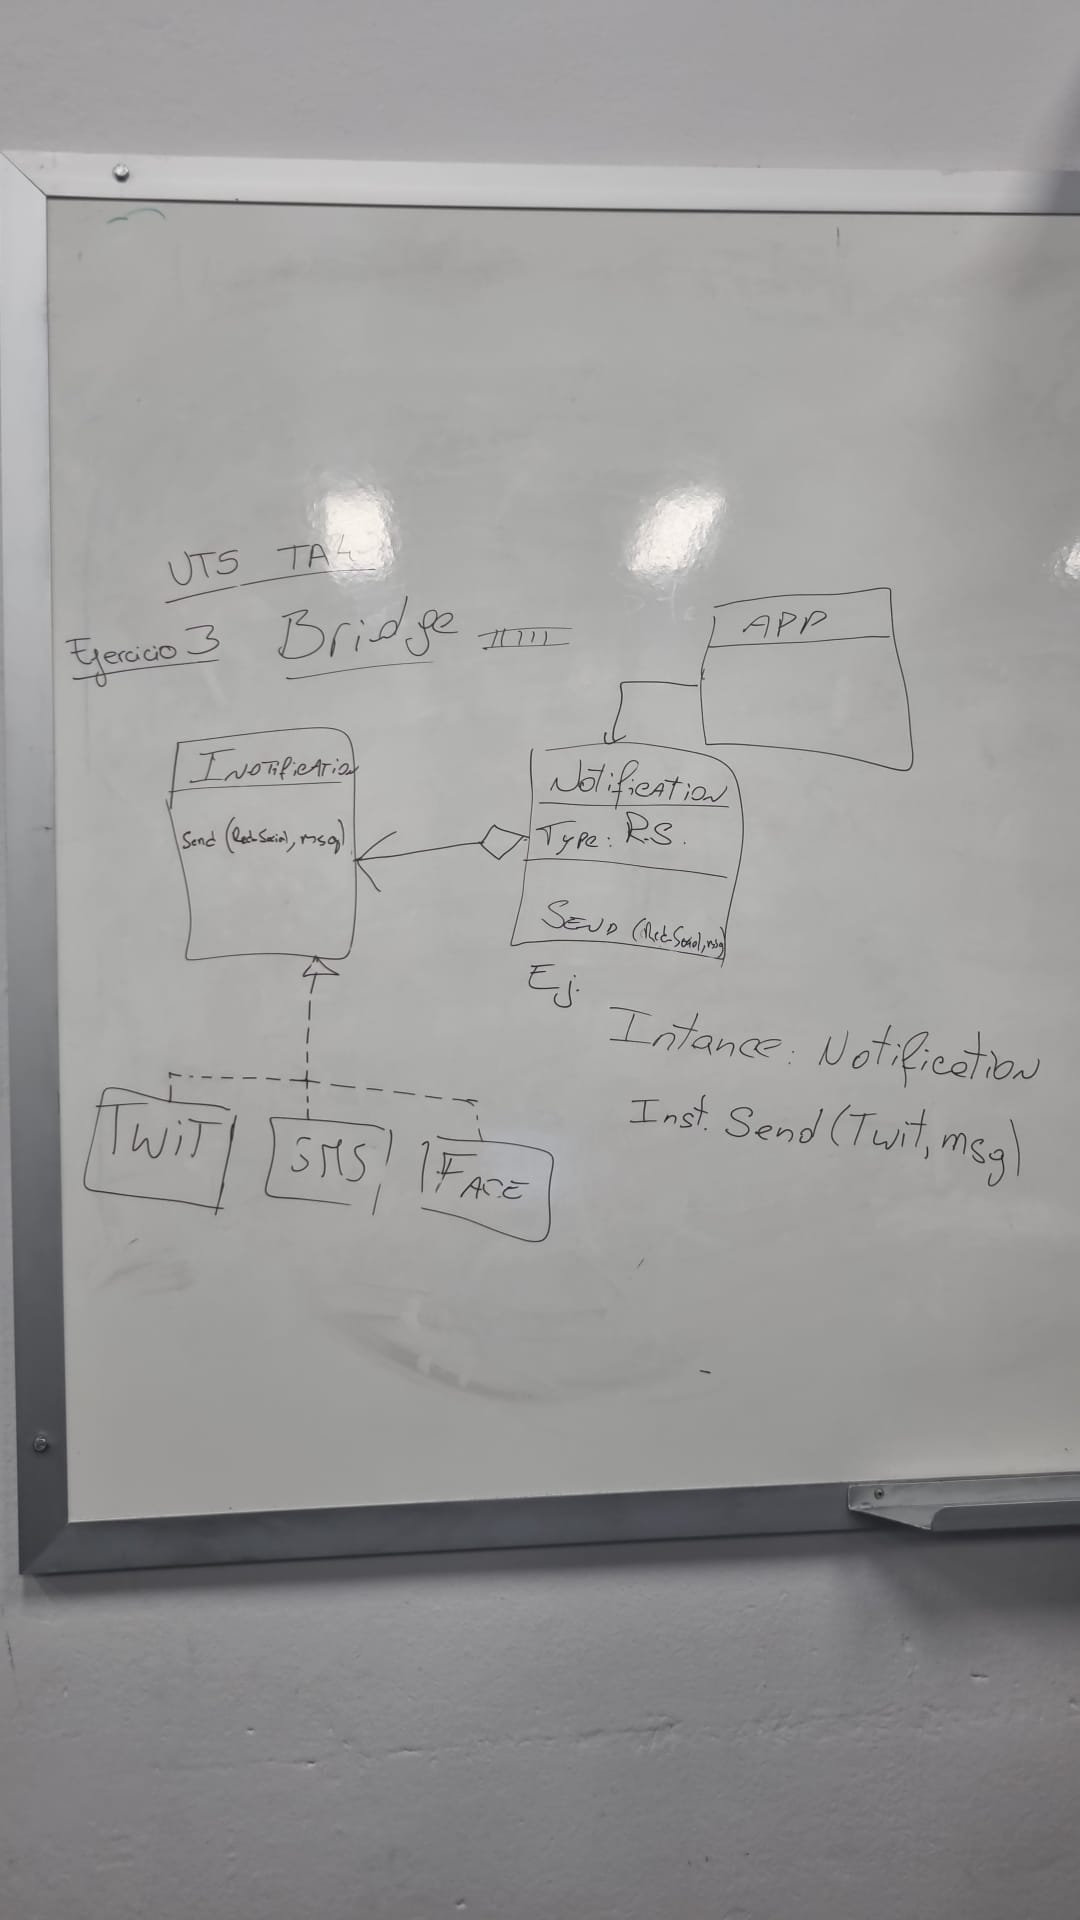 UT5 TA4
Ejercicio 3 Bridge
APP
INotification
Send (Red-Social, msg)
Notification
Type: R.S.
Send (Red-Social, msg)
Ej:
Intance: Notification
Inst. Send (Twit, msg)
TWIT
SMS
FACE